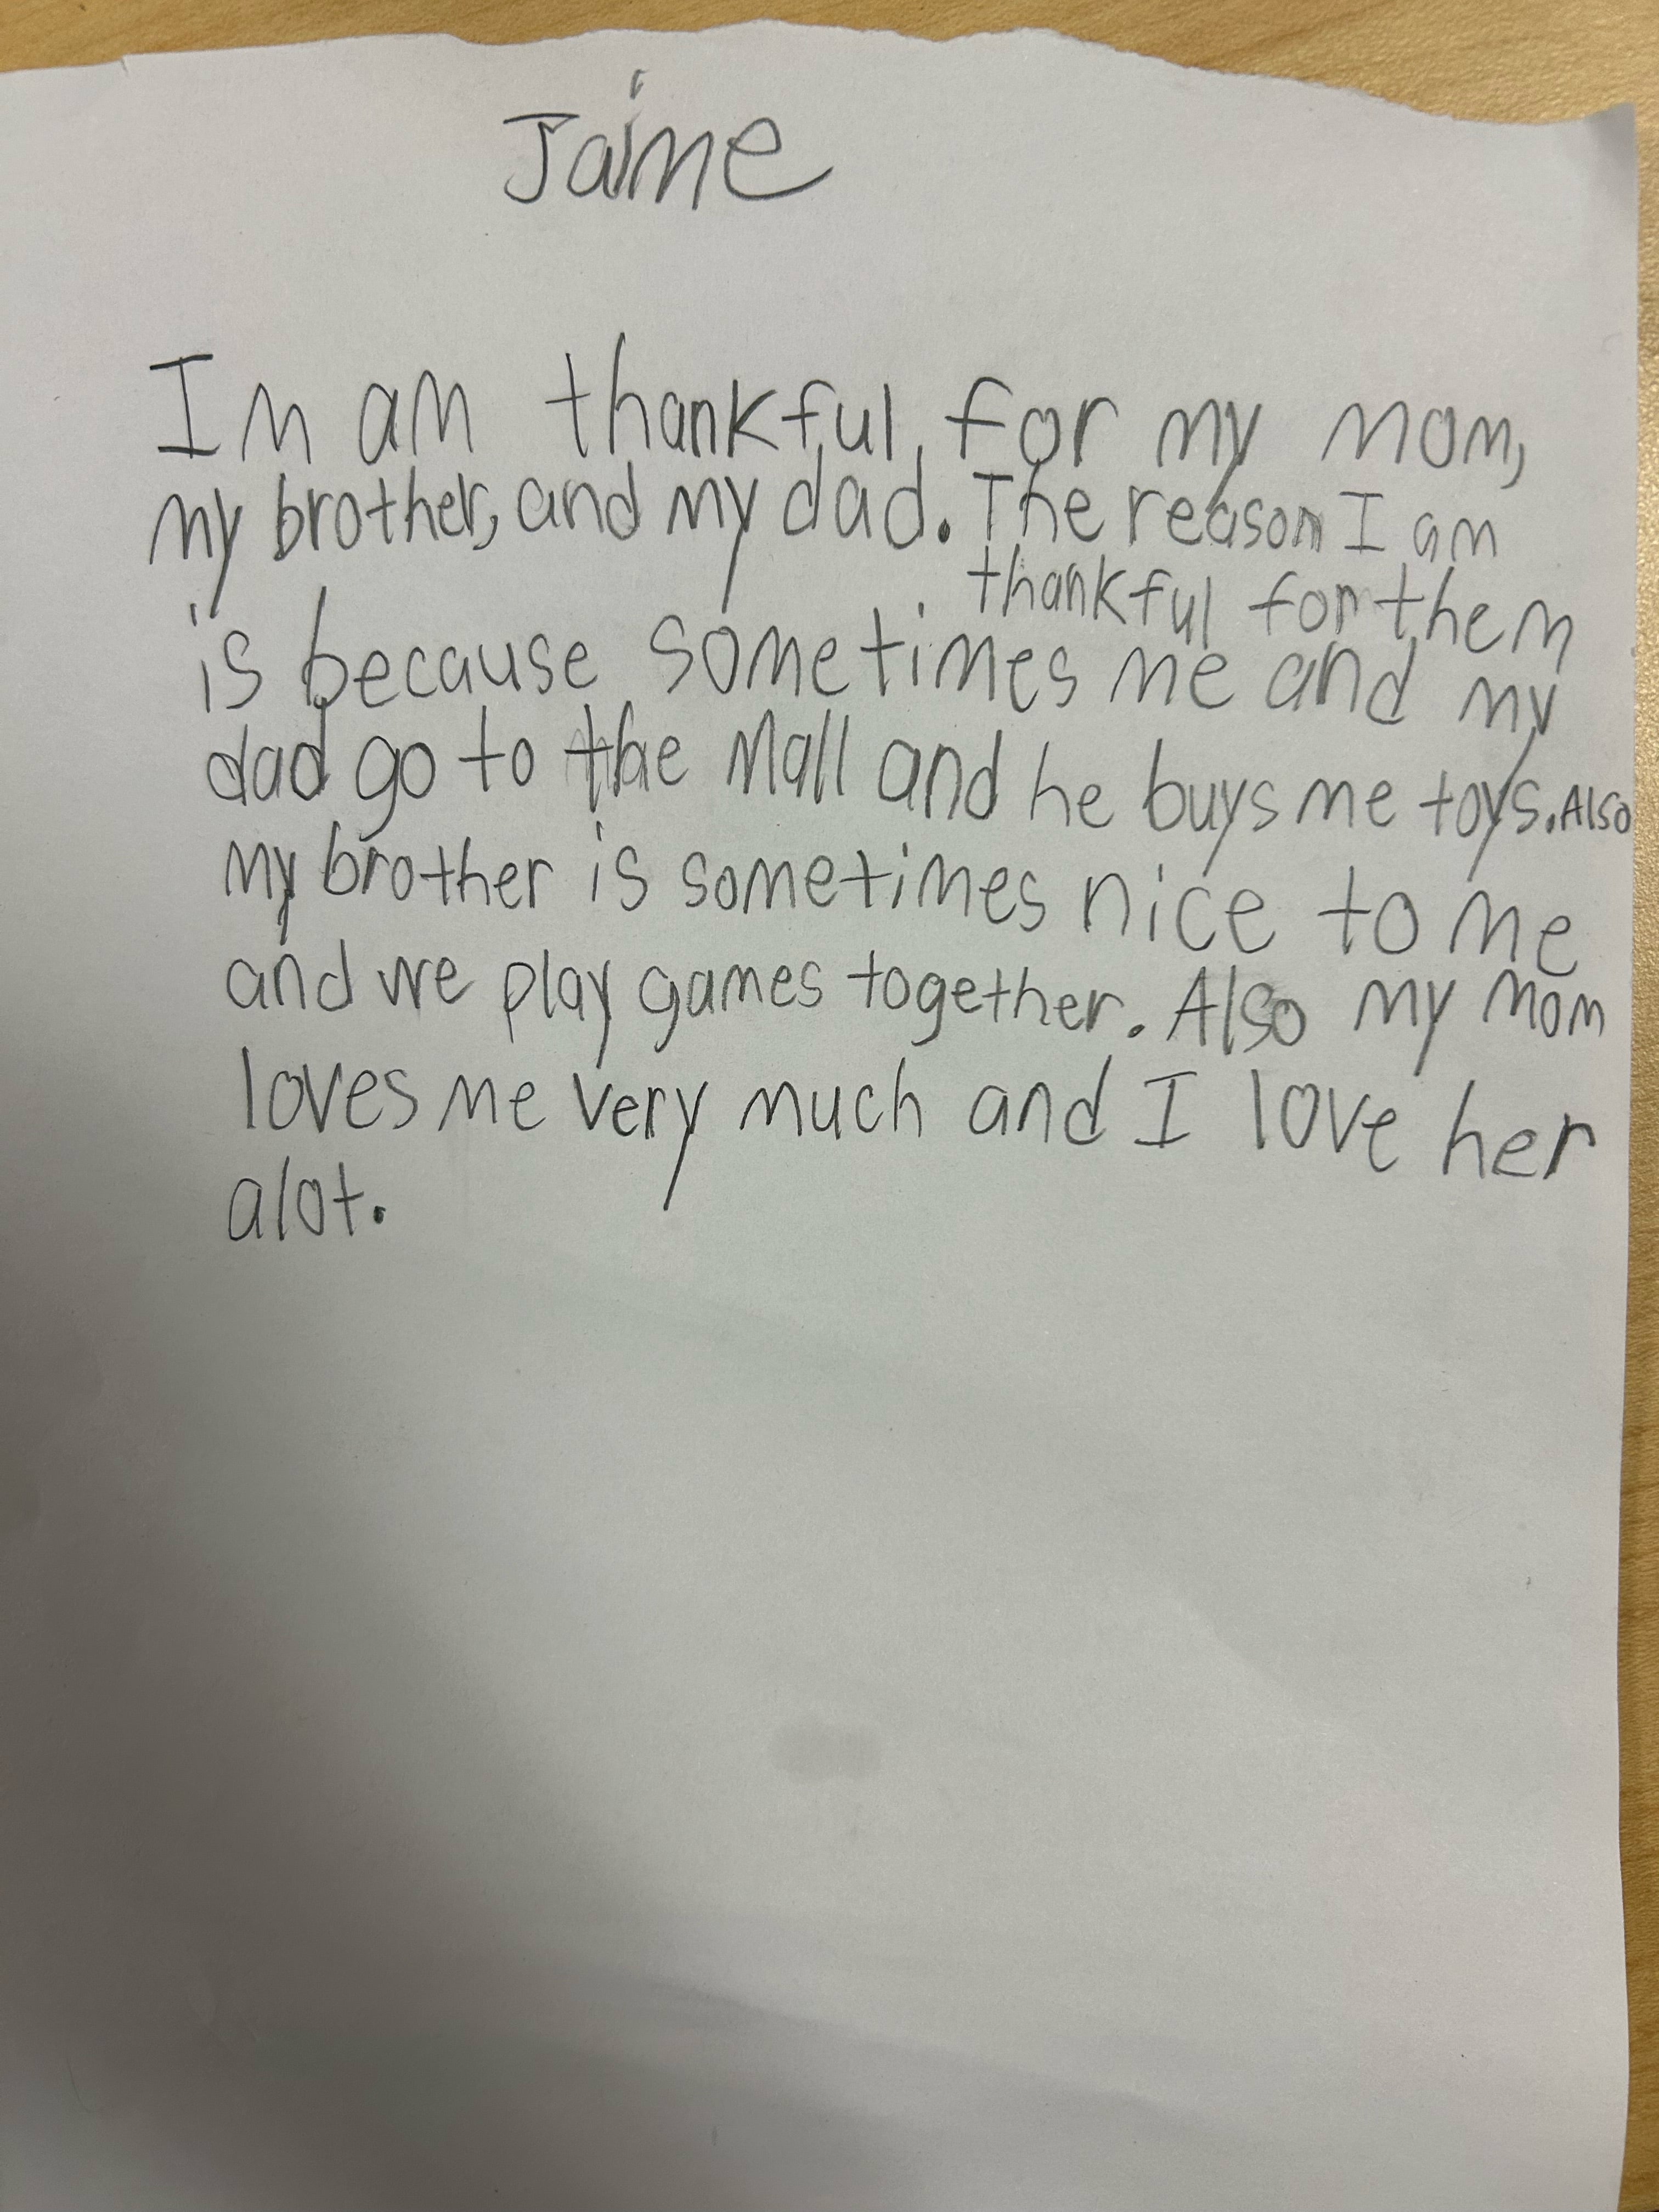 Jaime
Im am thankful for my mom,
my brother, and my dad. The reason I am
thankful for them
is because sometimes me and my
dad go to the Mall and he buys me toys. Also
my brother is sometimes nice to me
and we play games together. Also my mom
loves me very much and I love her
alot.